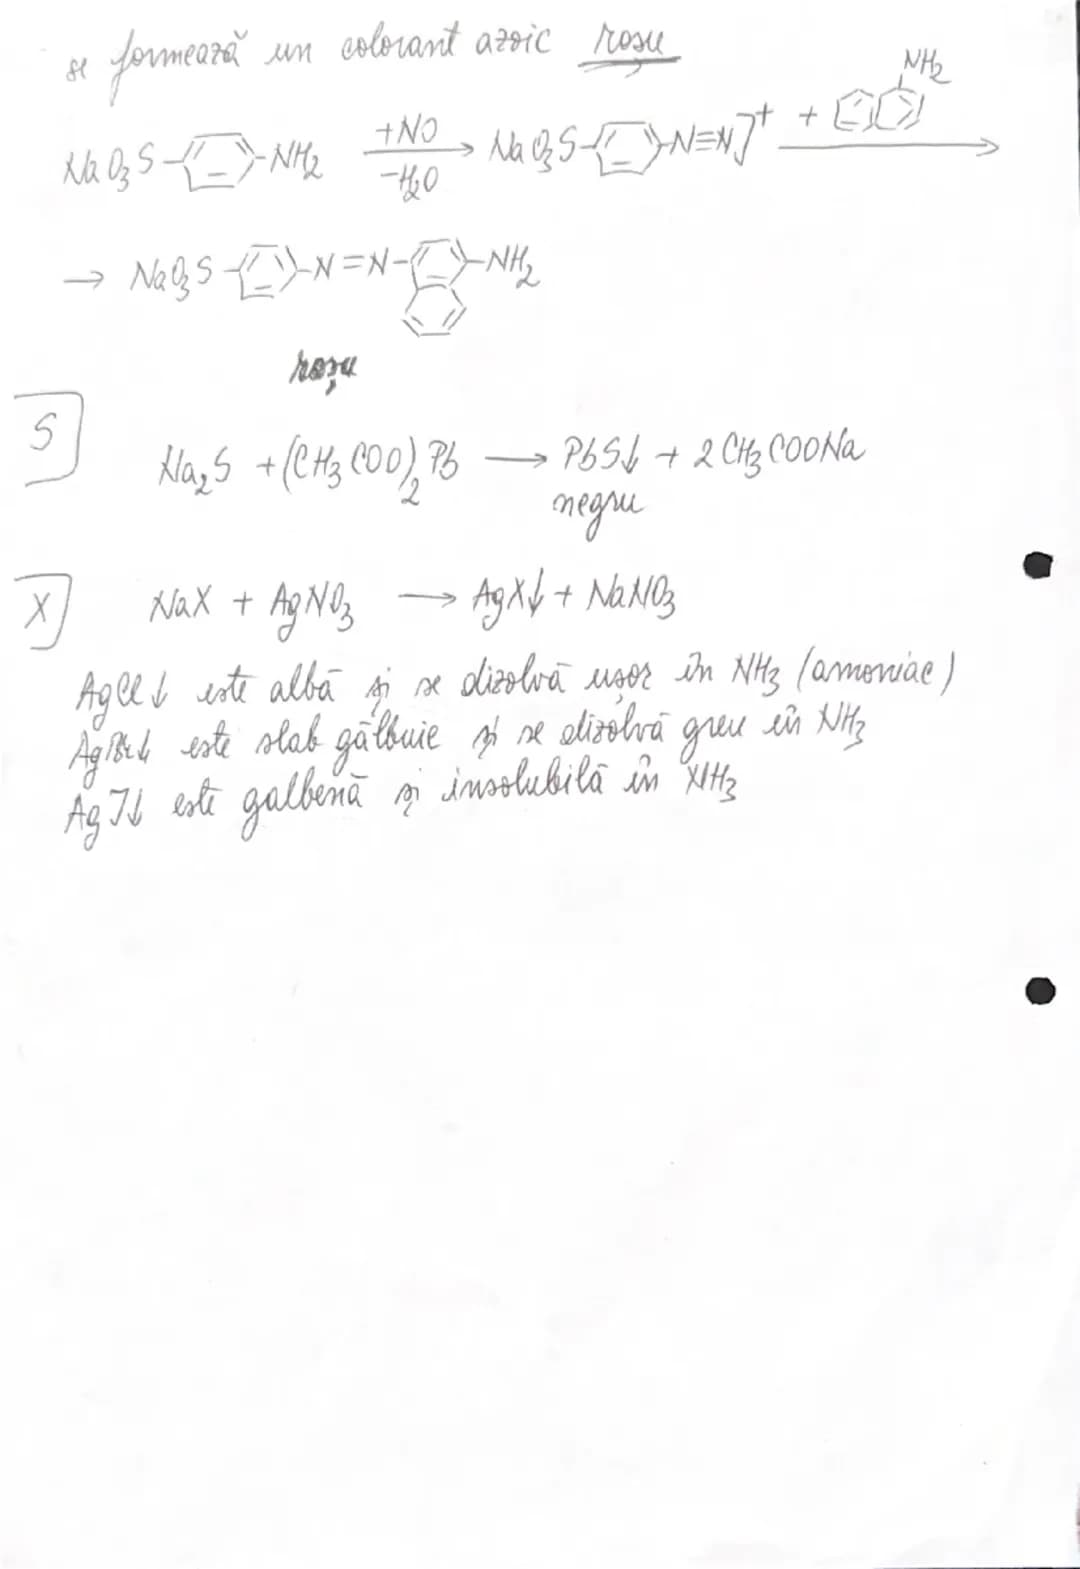 se formează un colorant azoic rosu
NaO₃S-⌬-NH₂ +NO -H₂O → NaO₃S-⌬-N≡N]⁺ + NH₂ →
→ NaO₃S-⌬-N=N- -NH₂
roșu
S
Na₂S + (CH₃COO)₂Pb → PbS↓ + 2CH₃COONa
negru
X
NaX + AgNO₃ → AgX↓ + NaNO₃
AgCl↓ este albă și se dizolvă ușor în NH₃ (amoniac)
AgBr↓ este slab gălbuie și se dizolvă greu în NH₃
AgI↓ este galbenă și insolubilă în NH₃